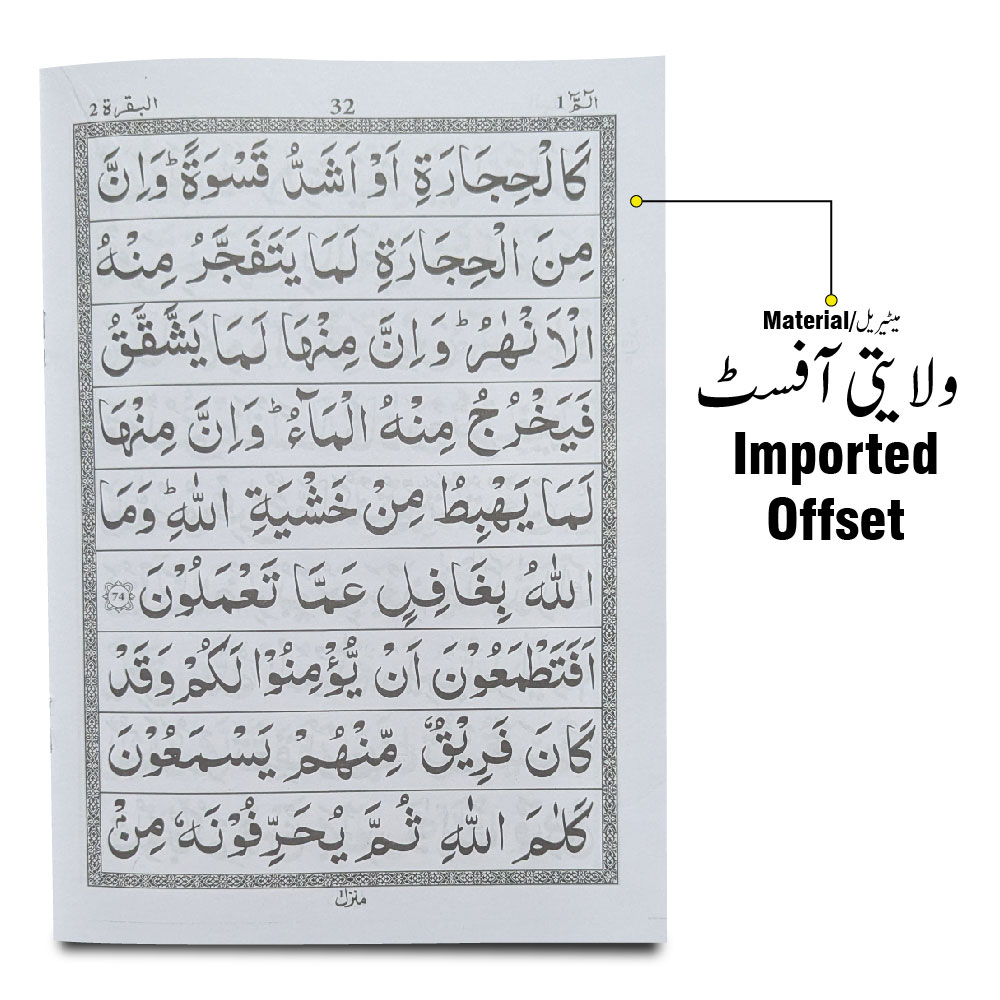 الٓمّٓ 1 32 البقرة 2
كَالْحِجَارَةِ اَوْ اَشَدُّ قَسْوَةًؕ وَاِنَّ
مِنَ الْحِجَارَةِ لَمَا يَتَفَجَّرُ مِنْهُ
الْاَنْهٰرُؕ وَاِنَّ مِنْهَا لَمَا يَشَّقَّقُ
فَيَخْرُجُ مِنْهُ الْمَآءُؕ وَاِنَّ مِنْهَا
لَمَا يَهْبِطُ مِنْ خَشْيَةِ اللّٰهِؕ وَمَا
اللّٰهُ بِغَافِلٍ عَمَّا تَعْمَلُوْنَ 74
اَفَتَطْمَعُوْنَ اَنْ يُّؤْمِنُوْا لَكُمْ وَقَدْ
كَانَ فَرِيْقٌ مِّنْهُمْ يَسْمَعُوْنَ
كَلٰمَ اللّٰهِ ثُمَّ يُحَرِّفُوْنَهٗ مِنْۢ
منزل ١
Material/میٹیریل
ولایتی آفسٹ
Imported
Offset